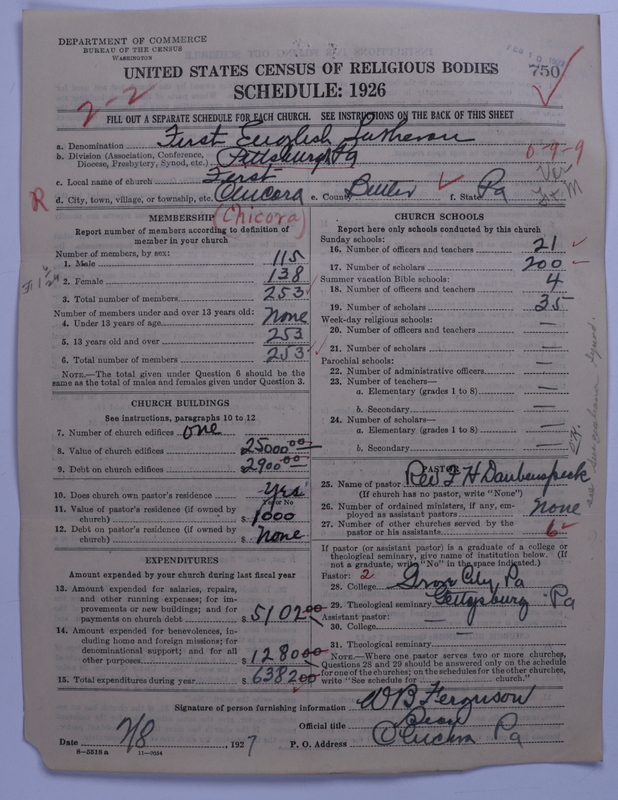 DEPARTMENT OF COMMERCE
BUREAU OF THE CENSUS
WASHINGTON
UNITED STATES CENSUS OF RELIGIOUS BODIES
750
SCHEDULE: 1926
2-2
FILL OUT A SEPARATE SCHEDULE FOR EACH CHURCH. SEE INSTRUCTIONS ON THE BACK OF THIS SHEET
a. Denomination First English Lutheran
b. Division (Association, Conference, Diocese, Presbytery, Synod, etc.) Pittsburgh Pa
0-9-9
c. Local name of church First
R
d. City, town, village, or township, etc. Chicora e. County Butler f. State Pa
(Chicora)
MEMBERSHIP
Report number of members according to definition of
member in your church
Number of members, by sex:
1. Male 115
2. Female 138
3. Total number of members 253
Number of members under and over 13 years old:
4. Under 13 years of age None
5. 13 years old and over 253
6. Total number of members 253
NOTE.—The total given under Question 6 should be
same as the total of males and females given under Question 3.
CHURCH BUILDINGS
See instructions, paragraphs 10 to 12
7. Number of church edifices one
8. Value of church edifices $25000.00
9. Debt on church edifices $2900.00
10. Does church own pastor's residence Yes
Yes or No
11. Value of pastor's residence (if owned by
church) $1000
12. Debt on pastor's residence (if owned by
church) $None
EXPENDITURES
Amount expended by your church during last fiscal year
13. Amount expended for salaries, repairs,
and other running expenses; for im-
provements or new buildings; and for
payments on church debt $5102.00
14. Amount expended for benevolences, in-
cluding home and foreign missions; for
denominational support; and for all
other purposes $1280.00
15. Total expenditures during year $6382.00
CHURCH SCHOOLS
Report here only schools conducted by this church
Sunday schools:
16. Number of officers and teachers 21
17. Number of scholars 200
Summer vacation Bible schools:
18. Number of officers and teachers 4
19. Number of scholars 35
Week-day religious schools:
20. Number of officers and teachers —
21. Number of scholars —
Parochial schools:
22. Number of administrative officers —
23. Number of teachers—
a. Elementary (grades 1 to 8) —
b. Secondary —
24. Number of scholars—
a. Elementary (grades 1 to 8) —
b. Secondary —
PASTOR
25. Name of pastor Rev F H Daubenspeck
(If church has no pastor, write "None")
26. Number of ordained ministers, if any, em-
ployed as assistant pastors None
27. Number of other churches served by the
pastor or his assistants
If pastor (or assistant pastor) is a graduate of a college or
theological seminary, give name of institution below. (If
not a graduate, write "No" in the space indicated.)
Pastor: 2
28. College Grove City, Pa
29. Theological seminary Gettysburg Pa
Assistant pastor:
30. College —
31. Theological seminary
NOTE.—Where one pastor serves two or more churches,
Questions 28 and 29 should be answered only on the schedule
for one of the churches; on the schedules for the other churches,
write "See schedule for church."
Signature of person furnishing information W B Ferguson
Official title
Date 2/8, 1927 P. O. Address Chicora Pa
8-5518a 11-9054